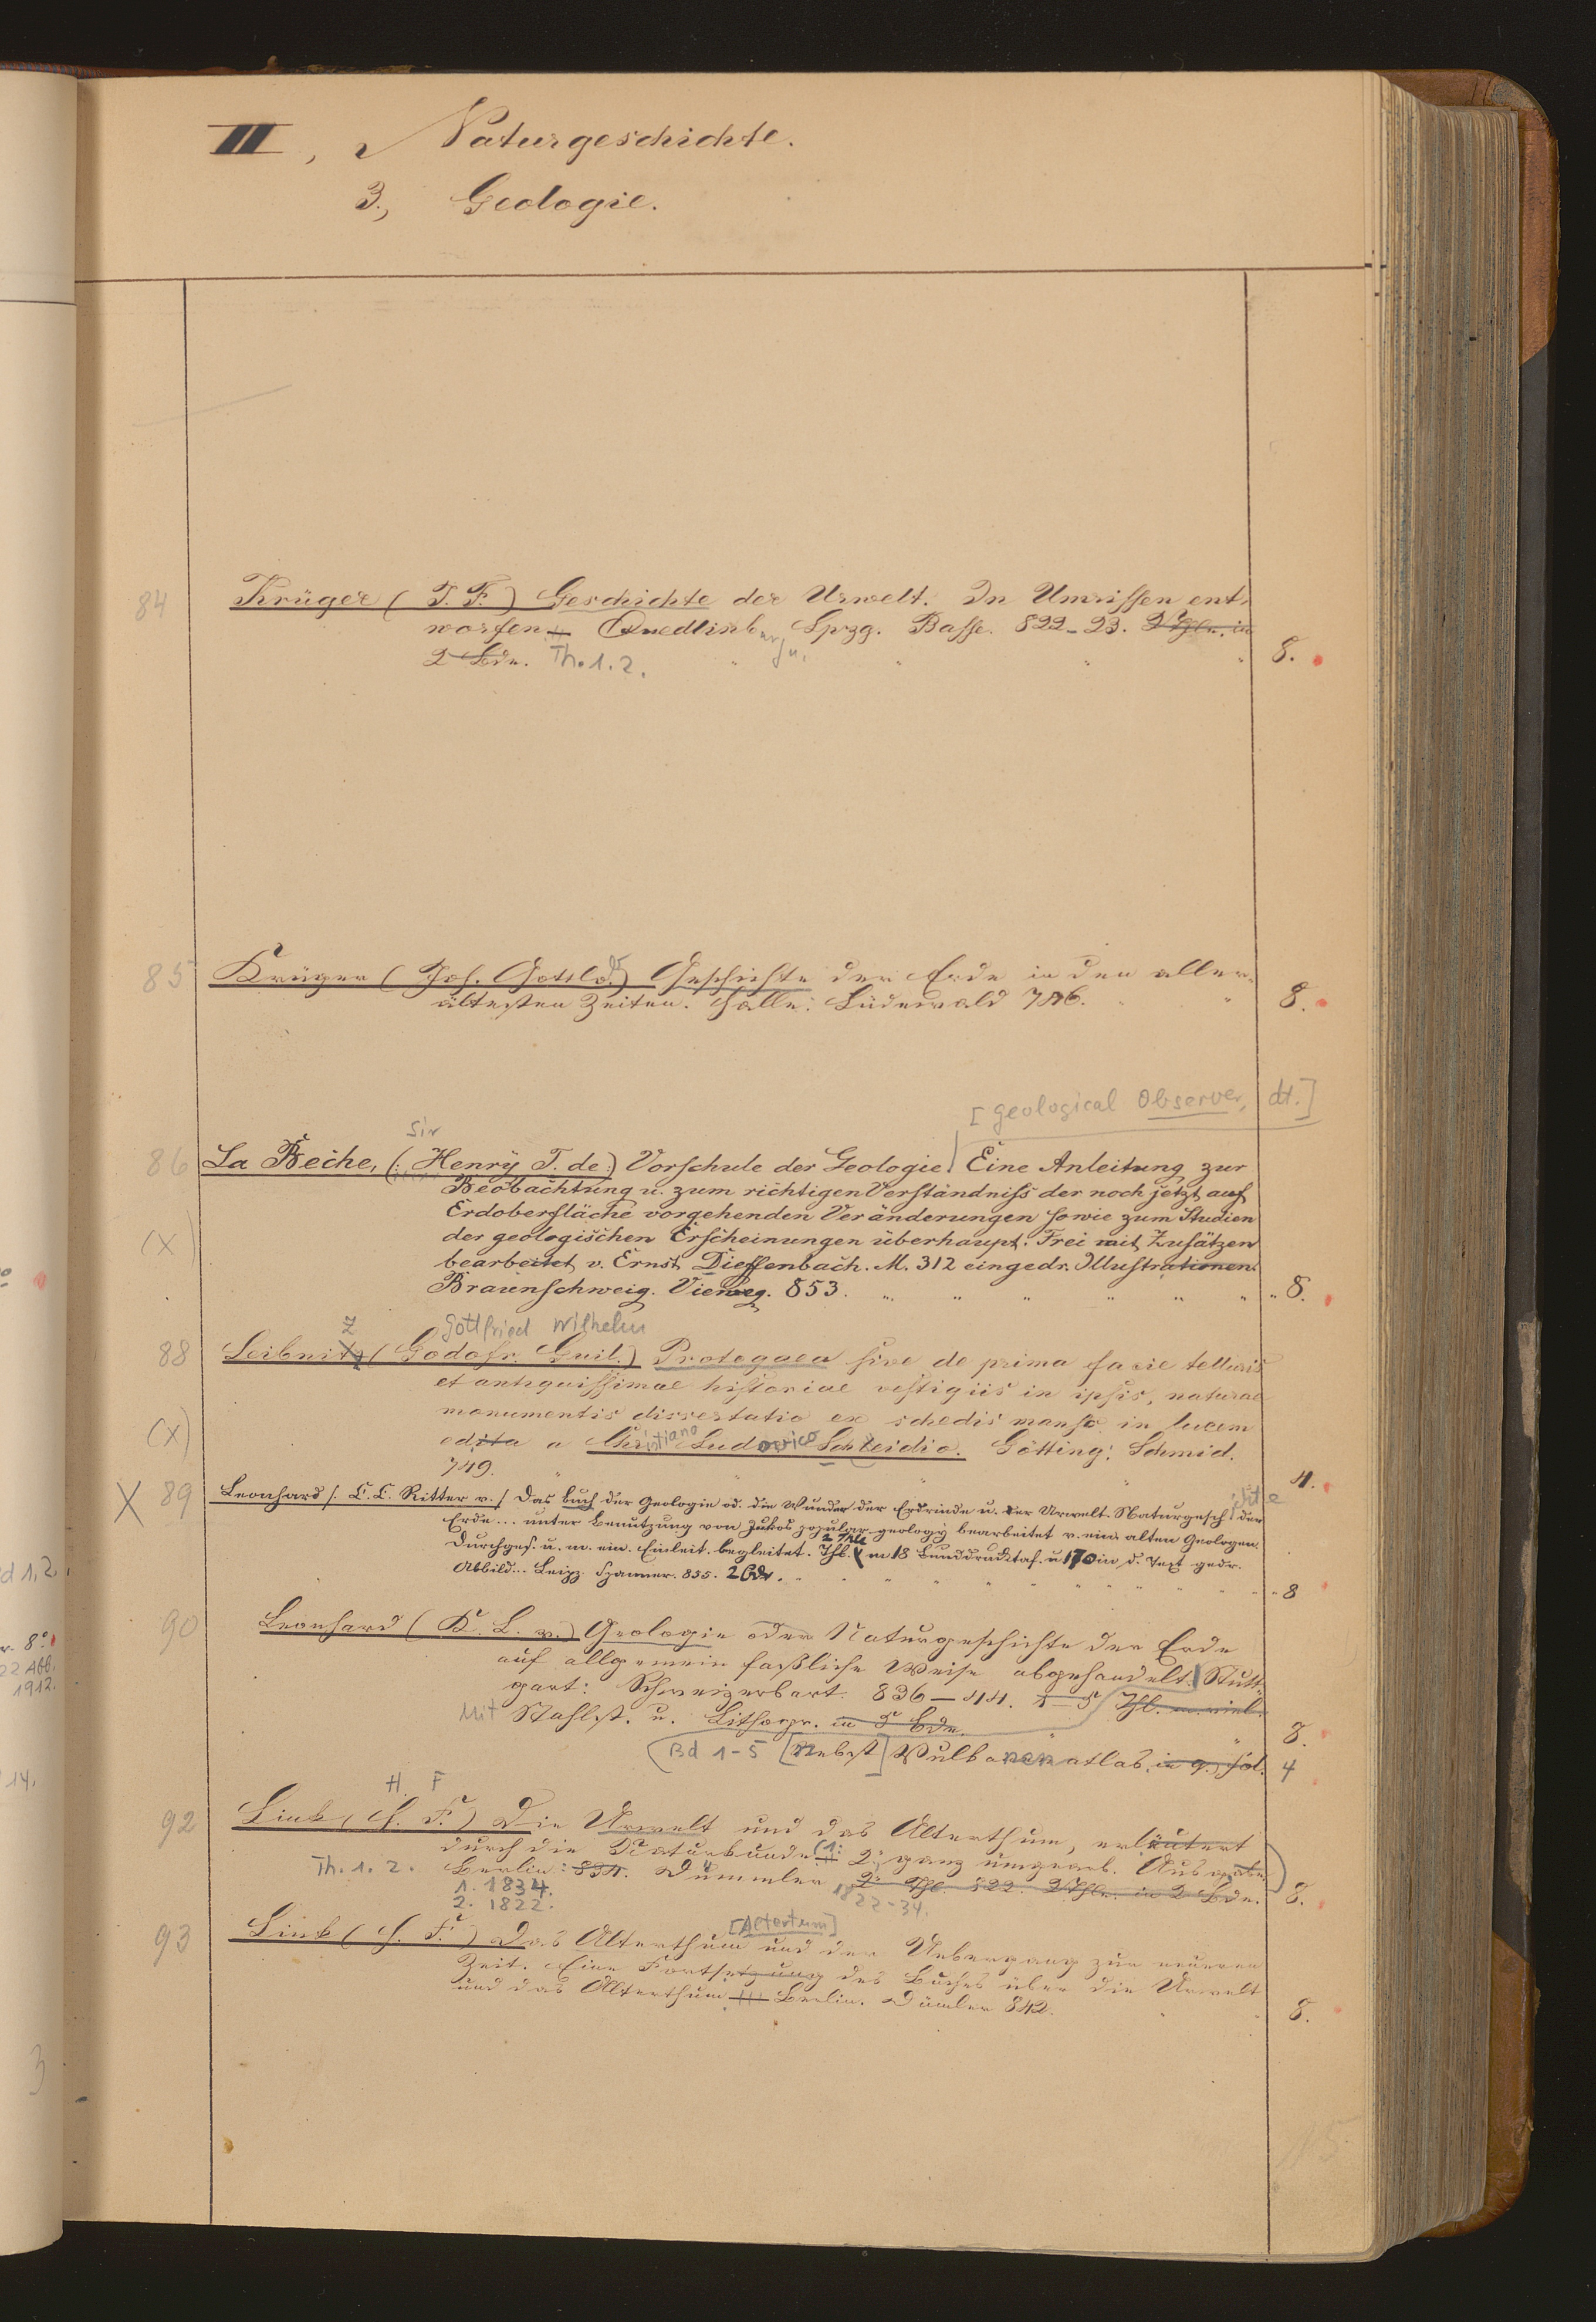 III, Naturgeschichte.
3., Geologie.
84 Krüger (J. F.) Geschichte der Urwelt. In Umrissen ent-
worfen. Quedlinburg u. Lpzg. Basse. 822-23. 2 Thle. in
2 Bde. Th. 1. 2. 8.
85 Krüger (Joh. Gottlob) Geschichte der Erde in den aller-
ältesten Zeiten. Halle: Lüderwald 746. 8.
[Geological Observer, dt.]
Sir
86 La Beche, (: Henry T. de:) Vorschule der Geologie. Eine Anleitung zur
Beobachtung u. zum richtigen Verständniss der noch jetzt auf
Erdoberfläche vorgehenden Veränderungen sowie zum Studien
(x) der geologischen Erscheinungen überhaupt. Frei mit Zusätzen
bearbeitet v. Ernst Dieffenbach. M. 312 eingedr. Illustrationen.
Braunschweig. Vieweg. 853. 8.
z Gottfried Wilhelm
88 Leibnitz (Godofr. Guil.) Protogaea sive de prima facie telluris
et antiquissimae historiae vestigiis in ipsis, naturae
monumentis dissertatio ex schedis manusc. in lucem
(x) edita a Christiano Ludovico Scheidio. Götting: Schmid.
749. 4.
X 89 Leonhard /. C. C. Ritter v. / Das Buch der Geologie od. die Wunder der Erdrinde u. der Urwelt. Naturgesch. der
Erde... unter Benutzung von popular geology bearbeitet v. ein. alten Geologen.
Durchges. u. m. ein. Einleit. begleitet. 2 Thle m 18 Bunddrucktaf. u 170 in d. Text gedr.
Abbild... Leipz. Spamer. 855. 2 Bde. 8
90 Leonhard (K. C. v.) Geologie oder Naturgeschichte der Erde
auf allgemein faßliche Weise abgehandelt. Stutt-
gart: Schweizerbart. 836-44. 1-5 Thl. m. viel.
Mit Stahlst. u. Lithogr. in 5 Bde. 8.
Bd 1-5 [nebst] Vulkanenatlas. in q. fol. 4
H. F
92 Link (H. F.) Die Urwelt und das Alterthum, erläutert
durch die Naturkunde (1: 2: ganz umgearb. Ausgabe.)
Th. 1. 2. Berlin: 834. Dümmler 2r Thl. 822. 2 Thle. in 2 Bde. 8.
1. 1834. 1822-34.
2. 1822.
[Altertum]
93 Link (H. F.) Das Alterthum und der Uebergang zur neueren
Zeit. Eine Fortsetzung des Buches über die Urwelt
und das Alterthum Berlin. Dümler 842. 8.